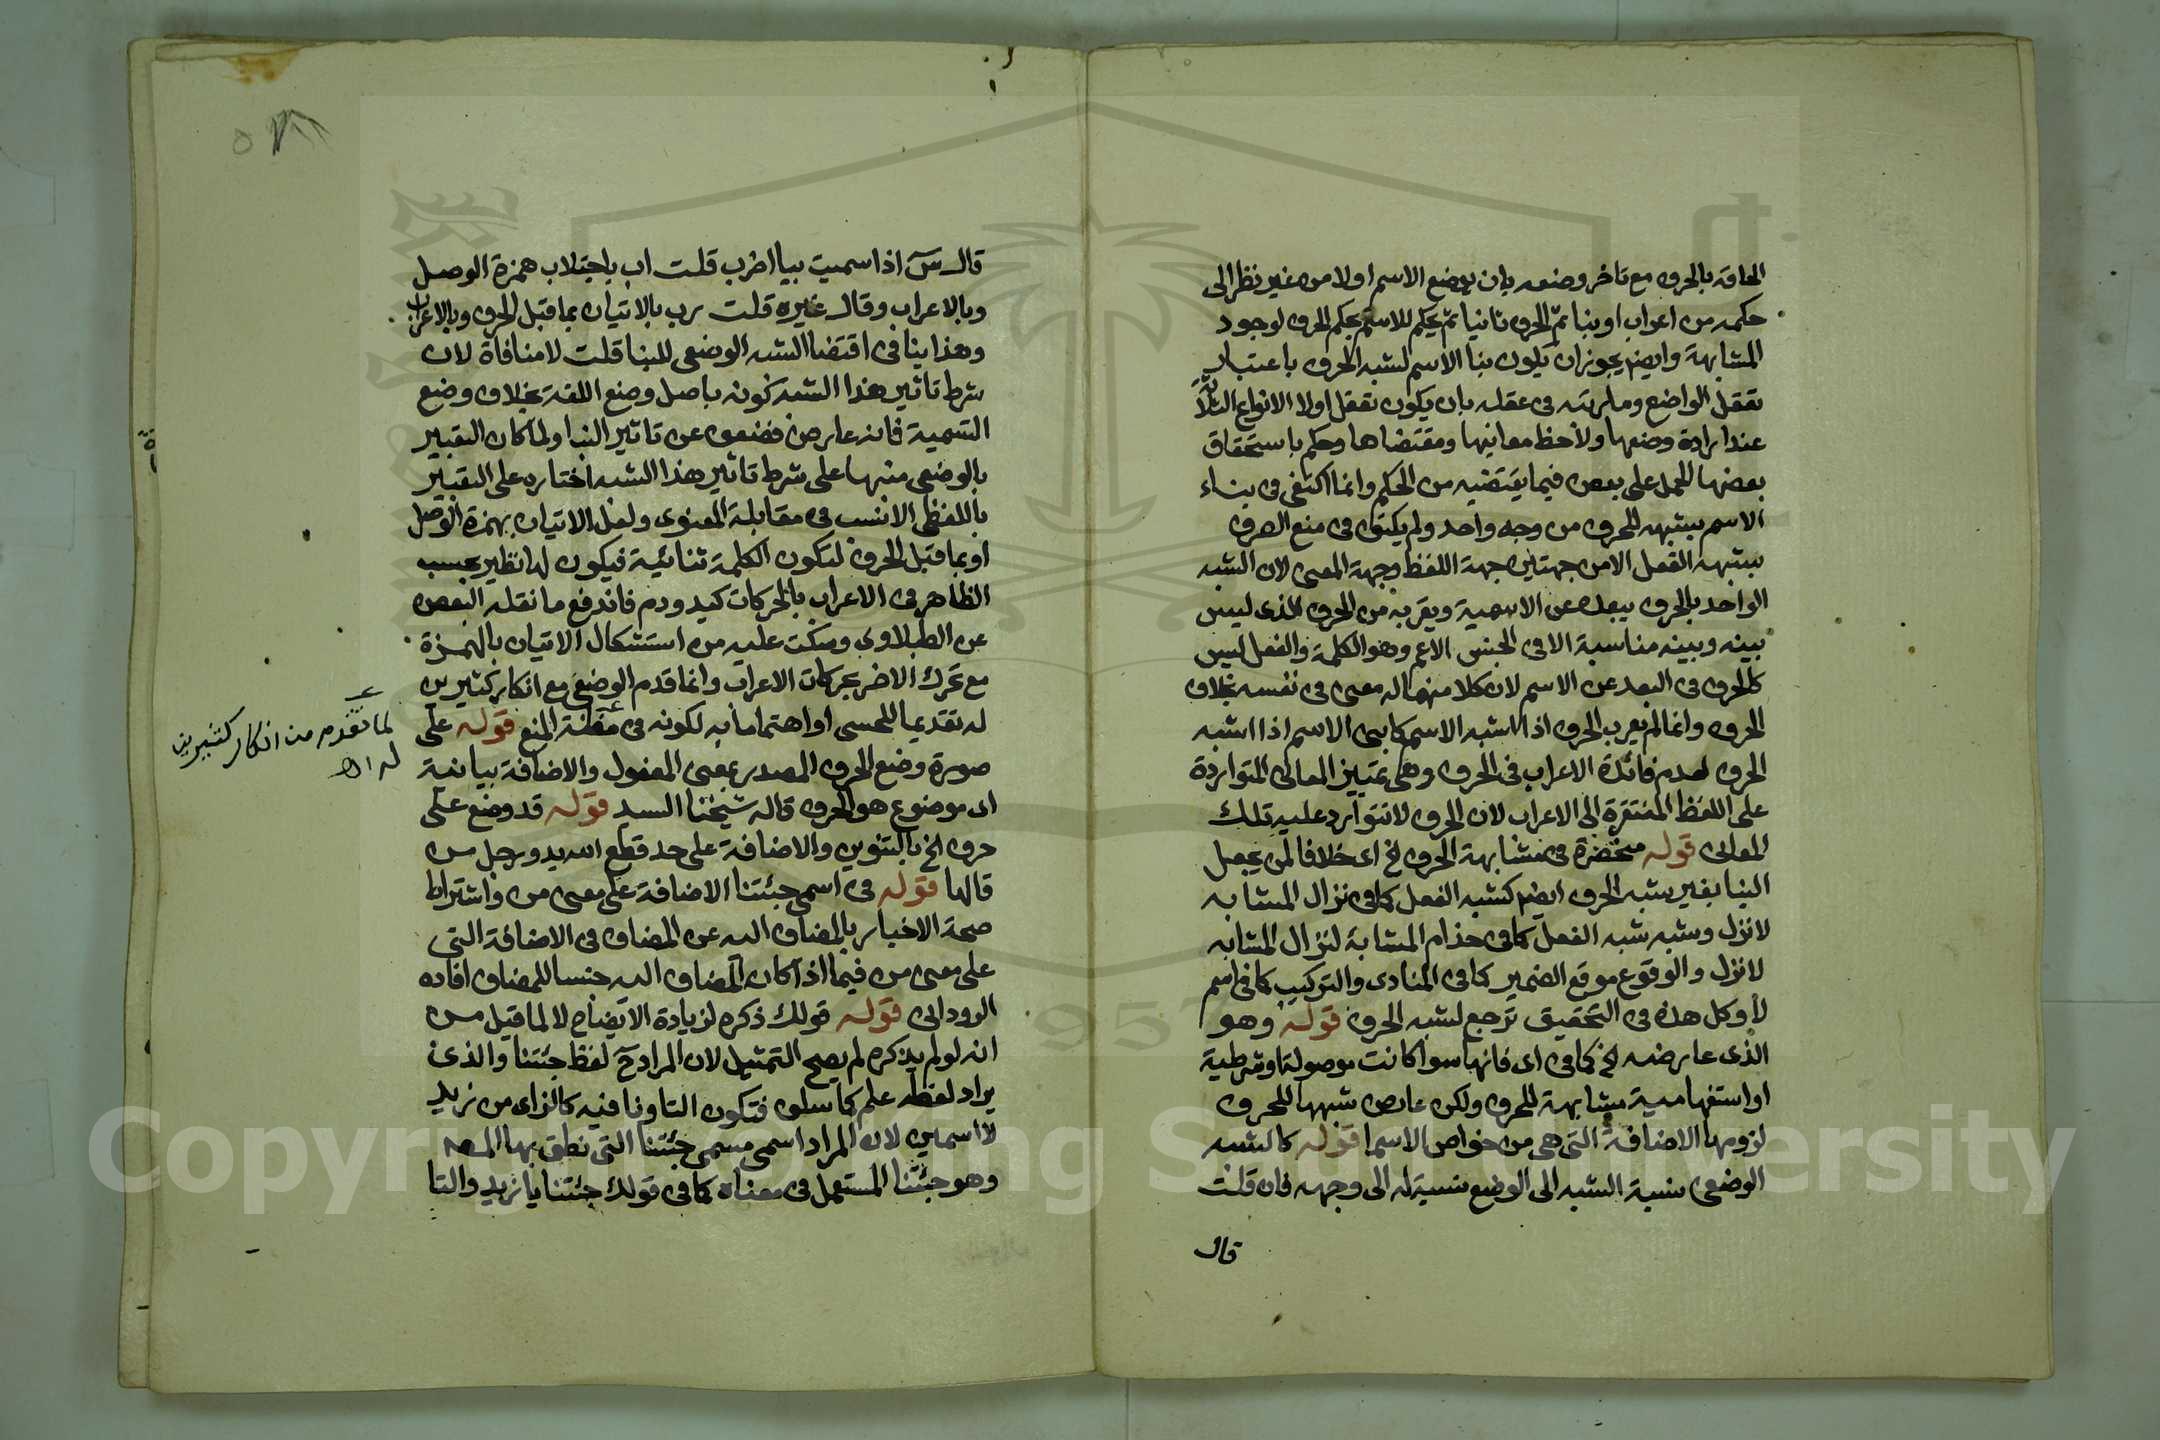 الحاقه بالحرف مع تاخر وضعه بان يوضع الاسم اولا من غير نظر الى
حكمه من اعراب او بنا ثم الحرف ثانيا ثم يحكم للاسم بحكم الحرف لوجود
المشابهة وايضا يجوز ان يكون بنا الاسم لشبه الحرف باعتبار
تعقل الواضع وملاحظته في عقله بان يكون تعقل اولا الانواع الثلاثة
عند ارادة وضعها ولاحظ معانيها ومقتضاها وحكم باستحقاق
بعضها للحمل على بعض فيما يقتضيه من الحكم وانما اكتفى في بناء
الاسم بشبهه للحرف من وجه واحد ولم يكتف في منع الصرف
بشبهه الفعل الا من جهتين جهة اللفظ وجهة المعنى لان الشبه
الواحد بالحرف يبعده عن الاسمية ويقربه من الحرف الذى ليس
بينه وبينه مناسبة الا في الجنس الاعم وهو الكلمة والفعل ليس
كالحرف في البعد عن الاسم لان كلا منهما له معنى في نفسه بخلاف
الحرف وانما لم يعرب الحرف اذا اشبه الاسم كما بنى الاسم اذا اشبه
الحرف لعدم فائدة الاعراب في الحرف وهى تمييز المعانى المتواردة
على اللفظ المفتقرة الى الاعراب لان الحرف لا تتوارد عليه تلك
المعانى قوله منحصرة في مشابهة الحرف الخ اى خلافا لمن يجعل
البنا بغير شبه الحرف ايضا كشبه الفعل كما في نزال المشابه
لانزل وشبه شبه الفعل كما في حذام المشابة لنزال المشابه
لانزل والوقوع موقع الضمير كما في المنادى والتركيب كما في اسم
لا وكل هذه في التحقيق ترجع لشبه الحرف قوله وهو
الذى عارضه الخ كما في اى فانها سوا كانت موصولة او شرطية
او استفهامية مشابهة للحرف ولكن عارض شبهها للحرف
لزومها الاضافة التى هى من خواص الاسما قوله كالشبه
الوضعى نسبة الشبه الى الوضع نسبة له الى وجهه فان قلت
قال
قال س اذا سميت بيا اضرب قلت اب باجتلاب همزة الوصل
وبالاعراب وقال غيره قلت رب بالاتيان بما قبل الحرف وبالاعراب
وهذا ينافى اقتضا الشبه الوضعى للبنا قلت لا منافاة لان
شرط تاثير هذا الشبه كونه باصل وضع اللغة بخلاف وضع
التسمية فانه عارض فضعف عن تاثير البنا ولما كان التعبير
بالوضعى منبها على شرط تاثير هذا الشبه اختاره على التعبير
باللفظى الانسب في مقابلة المعنوى ولعل الاتيان بهمزة الوصل
او بما قبل الحرف لتكون الكلمة ثنائية فيكون لها نظير بحسب
الظاهر في الاعراب بالحركات كيد ودم فاندفع ما نقله البعض
عن الطبلاوى وسكت عليه من استشكال الاتيان بالهمزة
مع تحرك الاخر بحركات الاعراب وانما قدم الوضعى مع انكار كثيرين
له تقديما للحسى او اهتماما به لكونه في مظنة المنع قوله على
صورة وضع الحرف المصدر بمعنى المفعول والاضافة بيانية
اى موضوع هو الحرف قاله شيخنا السيد قوله قد وضع على
حرف الخ بالتنوين والاضافة على حد قطع الله يد ورجل من
قالها قوله في اسمى جئتنا الاضافة على معنى من واشتراط
صحة الاخبار بالمضاف اليه عن المضاف في الاضافة التى
على معنى من فيما اذا كان المضاف اليه جنسا للمضاف افاده
الرودانى قوله قولك ذكره لزيادة الايضاح لا لما قيل من
انه لو لم يذكره لم يصح التمثيل لان المراد ح لفظ جئتنا والذى
يراد لفظه علم كما سلف فتكون التا ونا فيه كالزاى من زيد
لا اسمين لان المراد اسمى مسمى جئتنا التى نطق بها المصه
وهو جئتنا المستعمل في معناه كما في قولك جئتنا يا زيد والتا
لما تقدم من انكار كثيرين
له اه